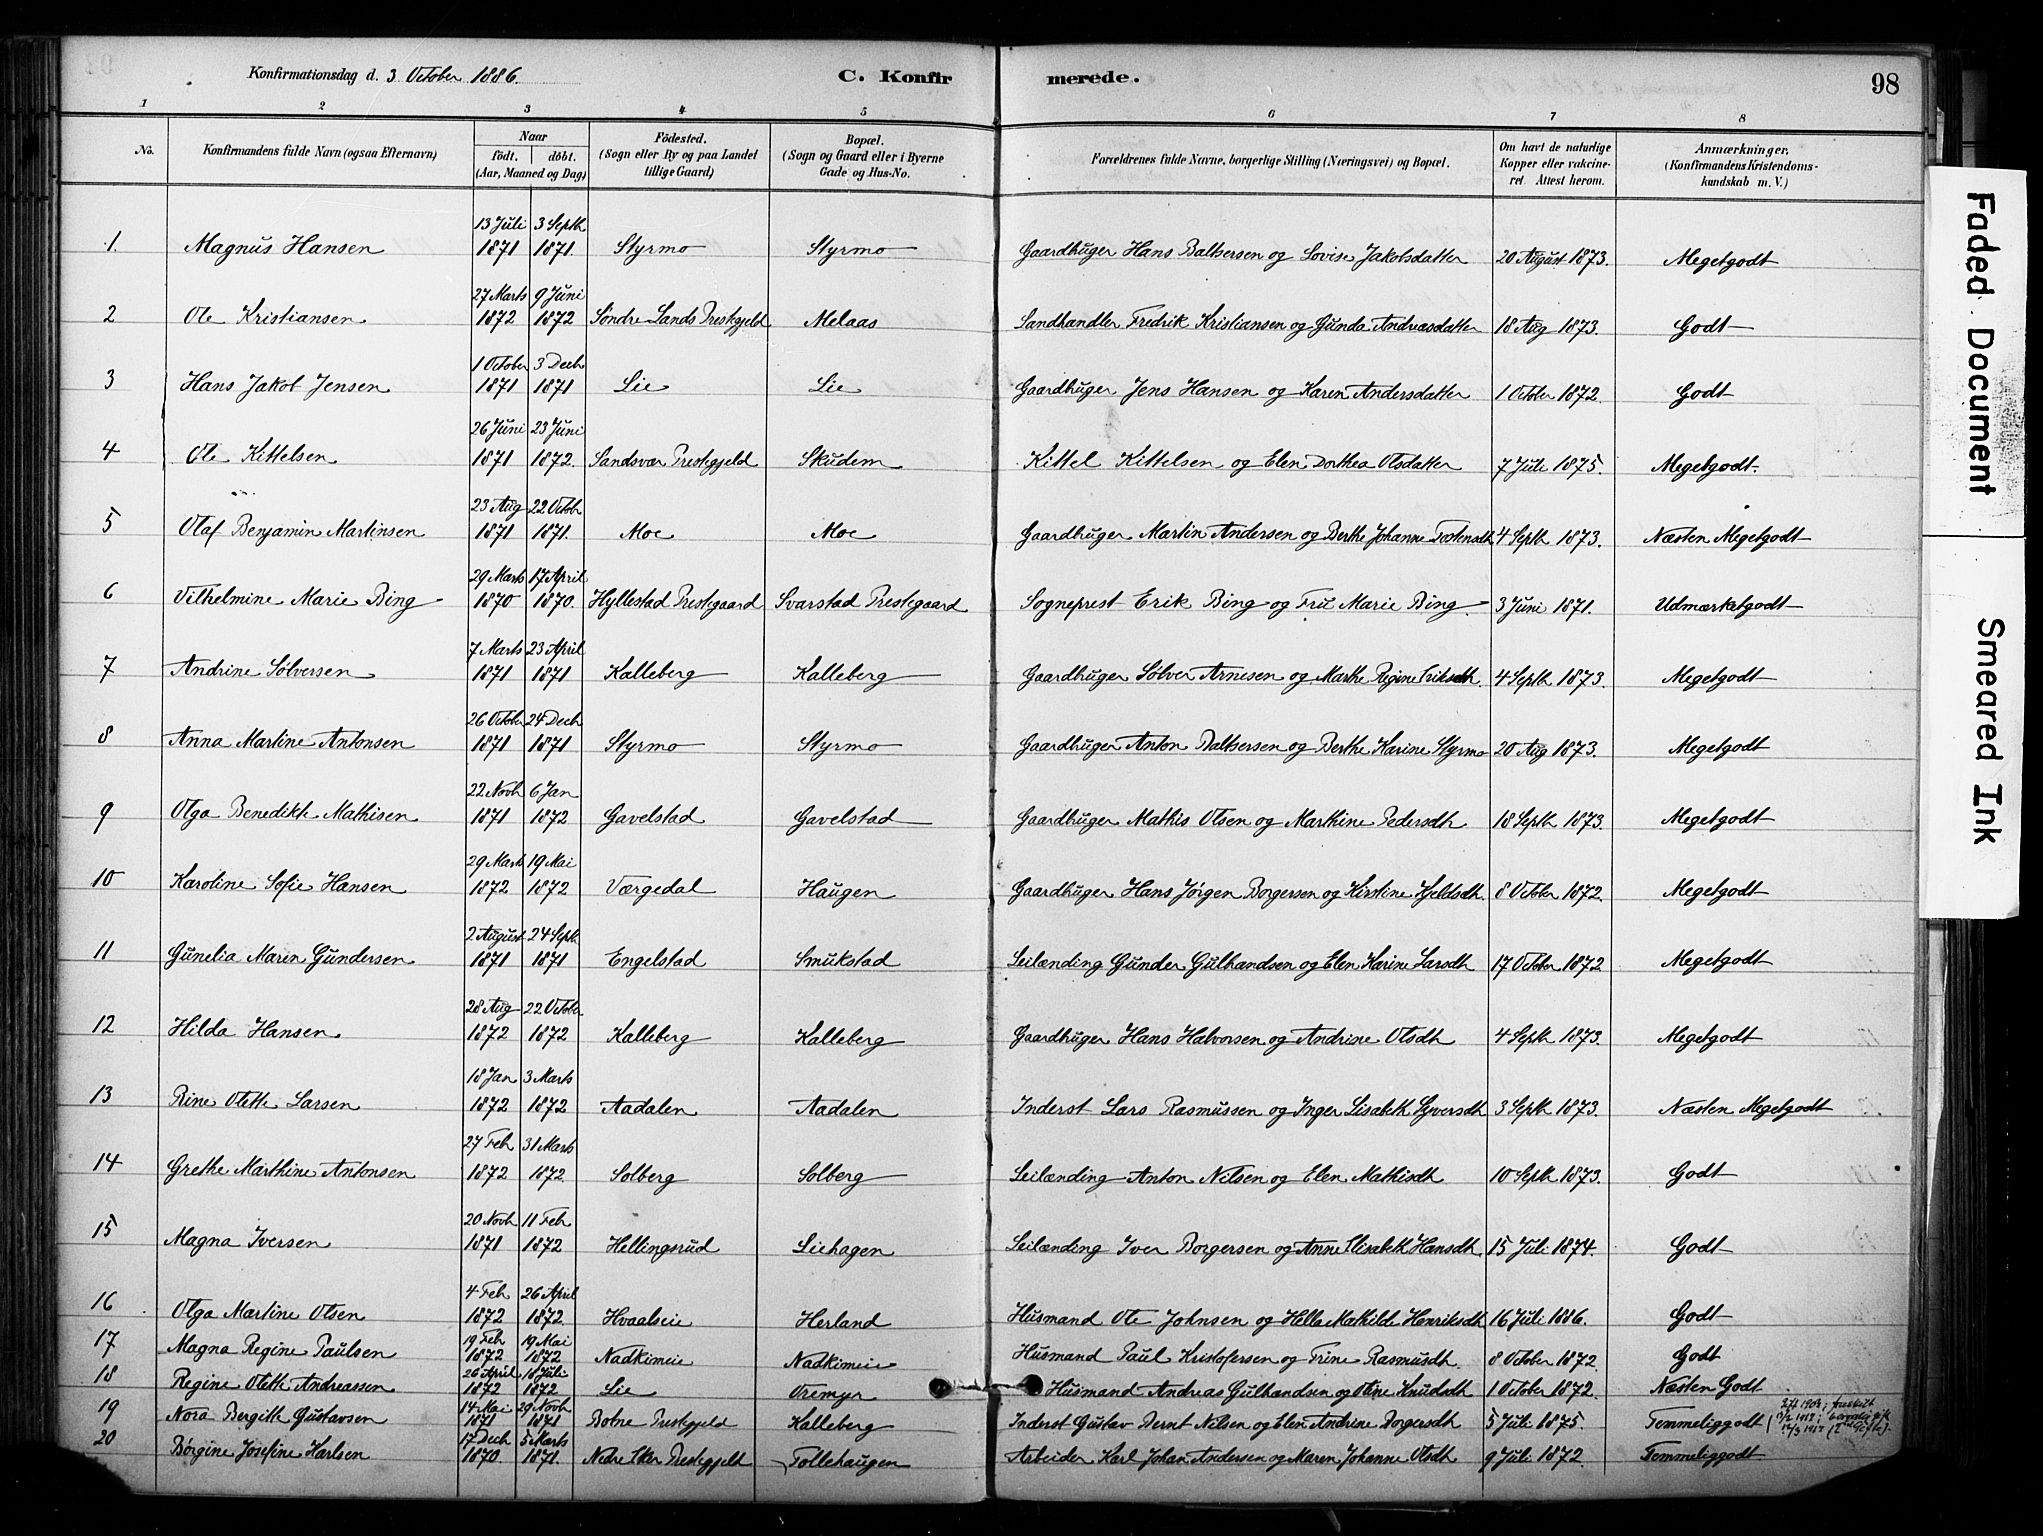 Konfirmationsdag d. 3 October 1886. C. Konfirmerede. 98
1 2 3 4 5 6 7 8
No. Konfirmandens fulde Navn (ogsaa Efternavn) Naar födt. döbt. (Aar, Maaned og Dag) Födested. (Sogn eller By og paa Landet tillige Gaard) Bopæl. (Sogn og Gaard eller i Byerne Gade og Hus-No. Forældrenes fulde Navne, borgerlige Stilling (Næringsvei) og Bopæl. Om havt de naturlige Kopper eller vakcineret. Attest herom. Anmærkninger, (Konfirmandens Kristendomskundskab m. V.)
1. Magnus Hansen 13 Juli 1871 3 Septb 1871. Styrmo Styrmo Gaardbruger Hans Baltsersen og Lovise Jakobsdatter 20 August 1873. Megetgodt
2 Ole Kristiansen 27 Marts 1872 9 Juni 1872 Söndre Lands Prestegjeld Melaas Landhandler Fredrik Kristiansen og Gunda Andreasdatter 18 Aug 1873. Godt
3 Hans Jakob Jensen 1 October 1871 3 Decb 1871 Lie Lie Gaardbruger Jens Hansen og Karen Andersdatter 1 October 1872. Godt
4 Ole Kittelsen 26 Juni 1871 23 Juni 1872. Sandsvær Prestegjeld Skudem Kittel Kittelsen og Elen Dorthea Olsdatter 7 Juli 1875. Megetgodt.
5 Olaf Benjamin Martinsen 23 Aug 1871 22 Octobr 1871. Moe Moe Gaardbruger Martin Andersen og Berthe Johanne Tostensdtr 4 Septb 1873. Næsten Megetgodt
6 Vilhelmine Marie Bing 29 Marts 1870 17 April 1870. Hyllestad Prestegaard Svarstad Prestegaard Sogneprest Erik Bing og Fru Marie Bing 3 Juni 1871. Udmærketgodt
7 Andrine Sölversen 7 Marts 1871 23 April 1871 Kalleberg Kalleberg Gaardbruger Sölver Arnesen og Marthe Regine Eriksdtr. 4 Septb 1873. Megetgodt
8 Anna Martine Antonsen 26 October 1871 24 Decb 1871 Styrmo Styrmo Gaardbruger Anton Baltsersen og Berthe Karine Styrmo 20 Aug 1873. Megetgodt
9 Olga Benedikte Mathisen 22 Novb 1871 6 Jan 1872 Gavelstad Gavelstad Gaardbruger Mathis Olsen og Marthine Pedersdtr 18 Septb 1873. Megetgodt
10 Karoline Sofie Hansen 29 Marts 1872 19 Mai 1872 Værgedal Haugen Gaardbruger Hans Jörgen Borgersen og Kirstine Kjeldsdtr. 8 October 1872. Megetgodt
11 Gunelia Maren Gundersen 2 August 1871 24 Septb 1871 Engelstad Smukstad Leilænding Gunder Gulbrandsen og Elen Karine Larsdtr 17 October 1872 Megetgodt
12 Hilda Hansen 28 Aug 1872 22 October 1872 Kalleberg Kalleberg Gaardbruger Hans Halvorsen og Andrine Olsdtr 4 Septb 1873. Megetgodt
13 Rine Olette Larsen 18 Jan 1872 3 Marts 1872 Aadalen Aadalen Inderst Lars Rasmussen og Inger Lisabeth Syversdtr 3 Septb 1873. Næsten Megetgodt
14 Grethe Marthine Antonsen 27 Feb 1872 31 Marts 1872. Solberg Solberg Leilænding Anton Nilsen og Elen Mathisdtr 10 Septb 1873. Godt
15 Magna Iversen 20 Novb 1871 11 Feb 1872 Hellingsrud Liehagen Leilænding Iver Borgersen og Anne Elisabeth Hansdtr. 15 Juli 1874. Godt
16 Olga Martine Olsen 4 Feb 1872 26 April 1872. Hvaalseie Herland Husmand Ole Johnsen og Hella Mathilde Henriksdtr 16 Juli 1886. Godt
17 Magna Regine Paulsen 19 Feb 1872 19 Mai 1872 Nadkimeie Nadkimeie Husmand Paul Kristofersen og Trine Rasmusdtr. 8 October 1872. Godt
18 Regine Olette Andreassen 26 April 1872 18 Juli 1872 Lie Oremyr Husmand Andreas Gulbrandsen og Oline Knudsdtr 1 October 1872. Næsten Godt
19 Nora Bergitte Gustavsen 14 Mai 1871 29 Novb 1871 Botne Prestegjeld Kalleberg Inderst Gustav Bernt Nilsen og Elen Andrine Borgersdtr. 5 Juli 1875. Temmeliggodt
20 Börgine Josefine Karlsen 17 Decb 1870. 5 Marts 1871. Nedre Eker Prestegjeld Tollehaugen Arbeider Karl Johan Andersen og Maren Johanne Olsdtr 9 Juli 1872. Temmeliggodt
Faded Document
Smeared Ink